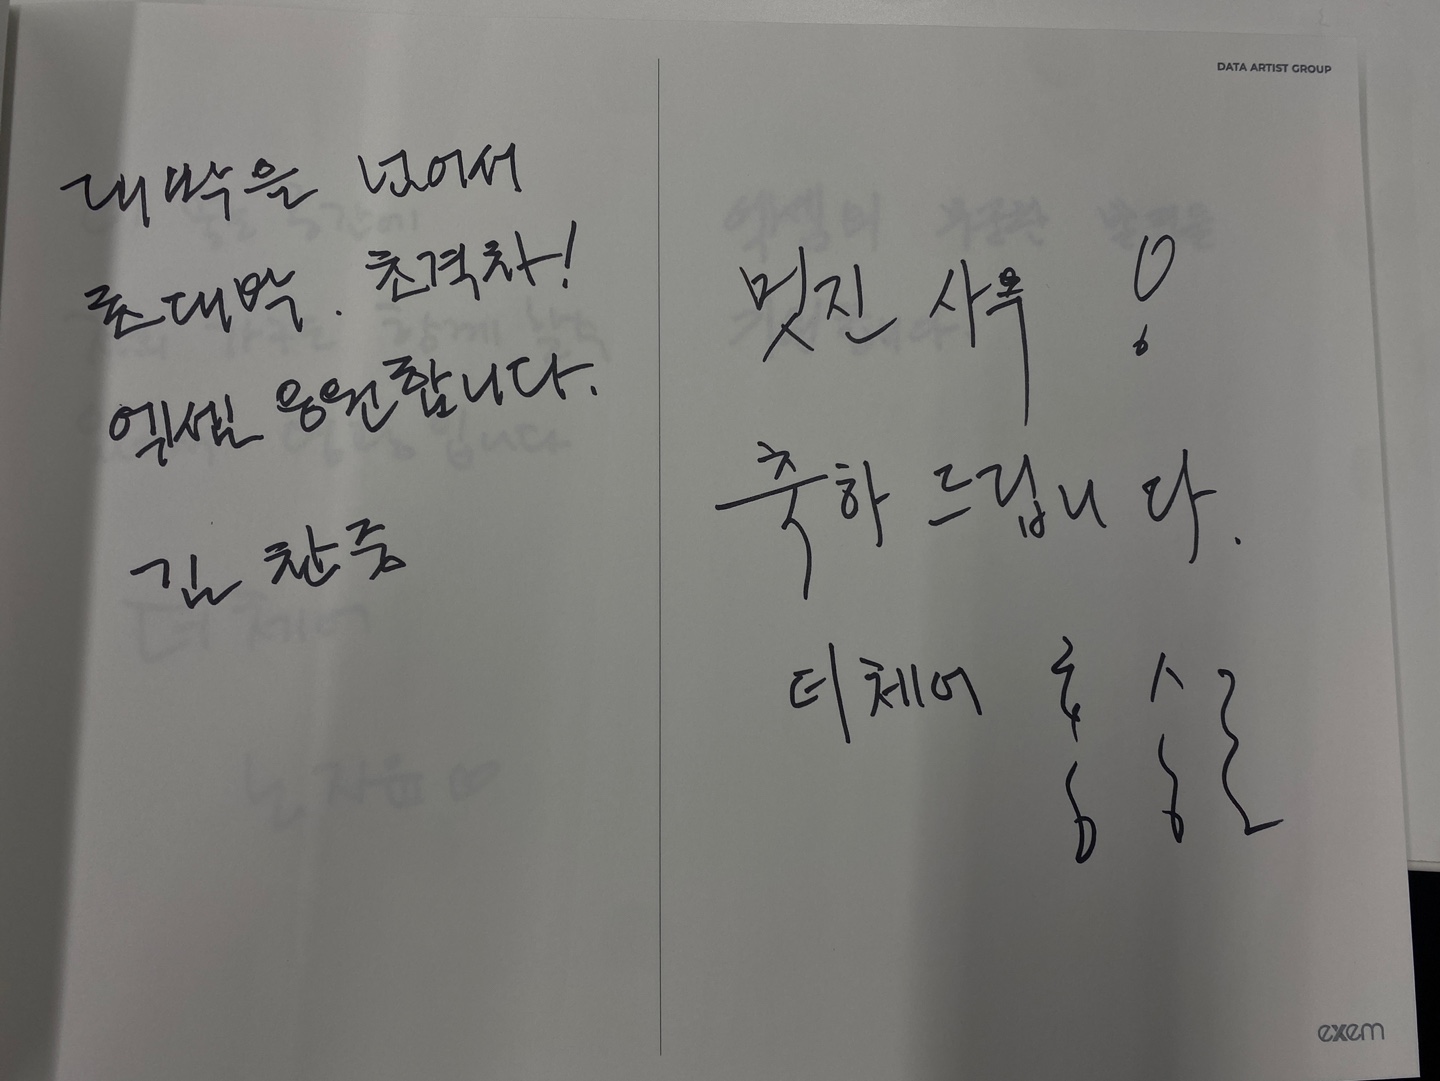 대박을 넘어서
초대박. 초격차!
엑셈 응원합니다.
김찬중
DATA ARTIST GROUP
멋진 사옥!
축하 드립니다.
더체어
exem